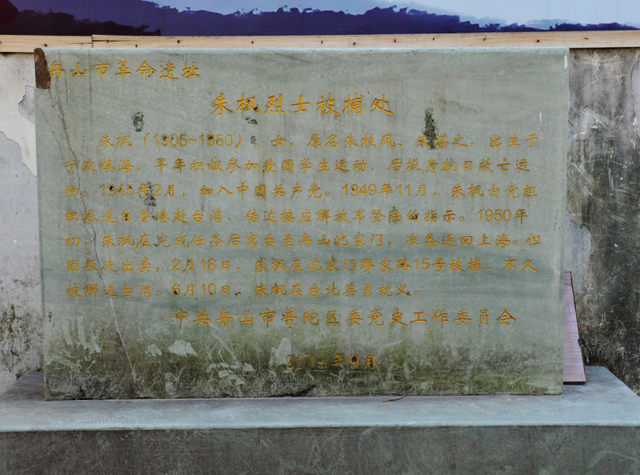 舟山市革命遗址
朱枫烈士被捕处
朱枫（1905-1950），女，原名朱桂凤、朱谌之，出生于
宁波镇海，早年积极参加爱国学生运动，后投身抗日救亡运
动。1945年2月，加入中国共产党。1949年11月，朱枫由党组
织派遣自香港赴台湾，传达接应解放军登陆的指示。1950年
初，朱枫在完成任务后离台至舟山沈家门，准备返回上海。但
因叛徒出卖，2月18日，朱枫在沈家门缪家路15号被捕，不久
被解送台湾。6月10日，朱枫在台北英勇就义。
中共舟山市普陀区委党史工作委员会
年9月